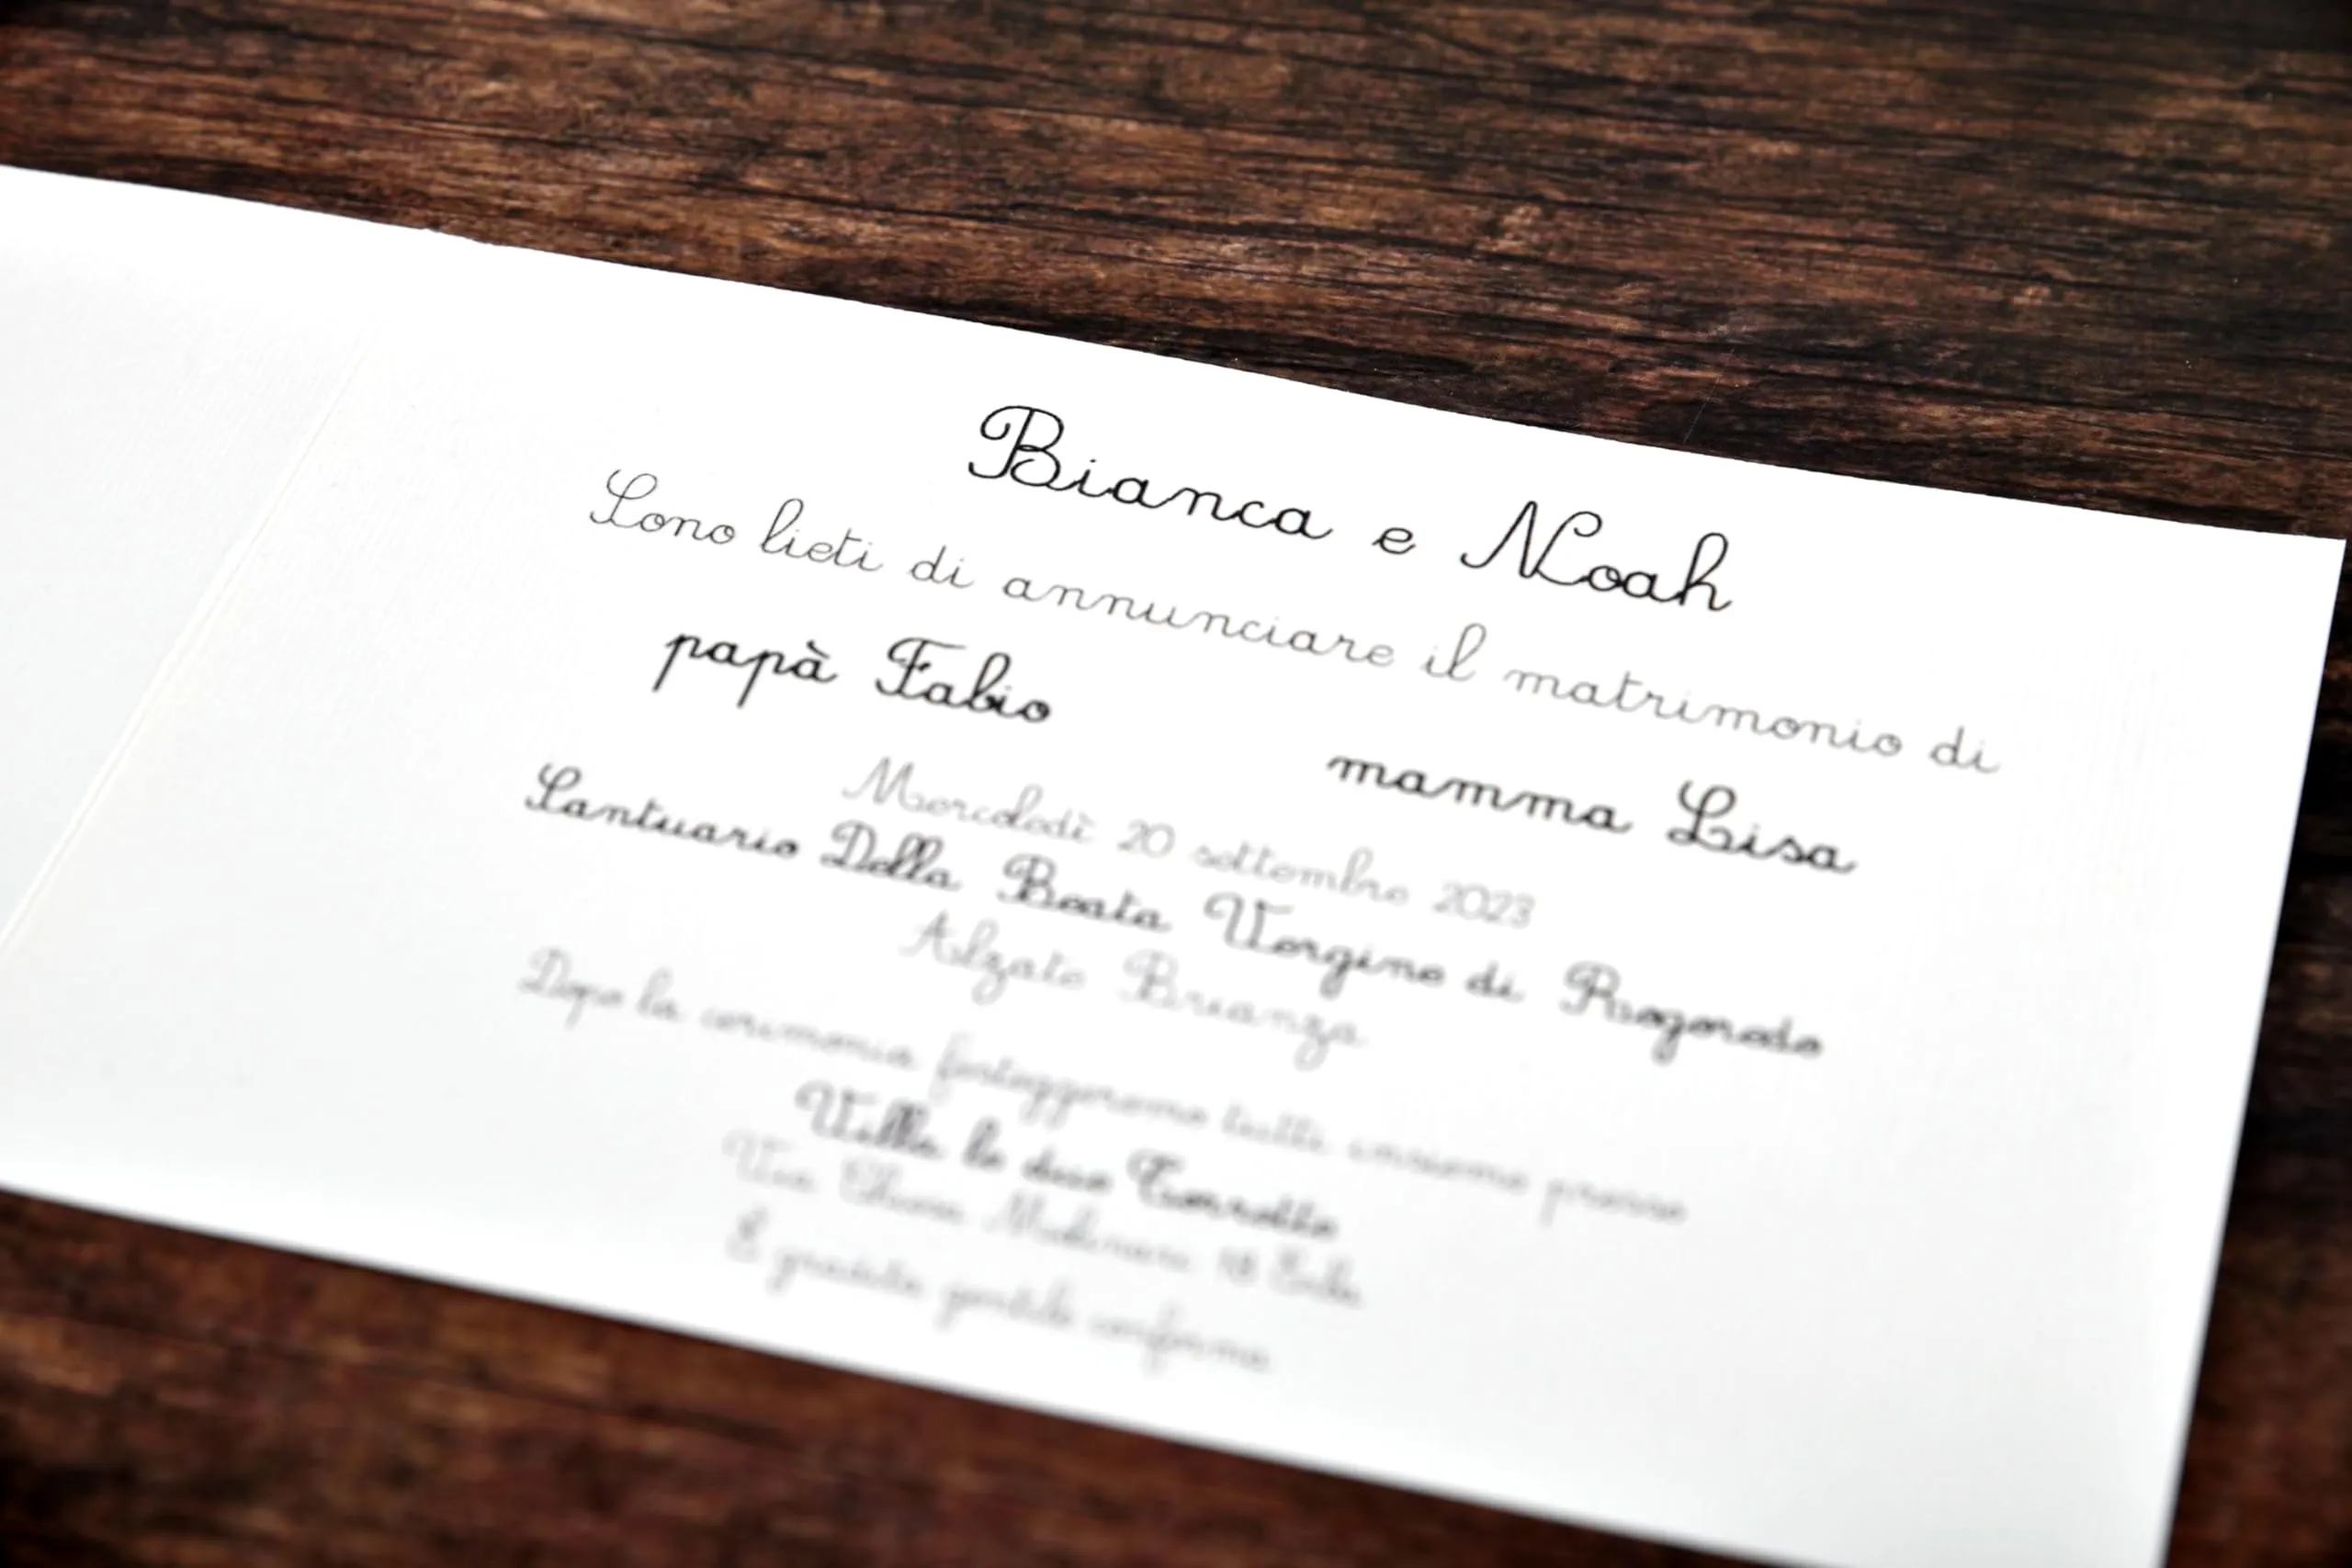 Bianca e Noah
Sono lieti di annunciare il matrimonio di
papà Fabio
mamma Lisa
Mercoledì 20 settembre 2023
Santuario Della Beata Vergine di Rogoredo
Alzate Brianza
Dopo la cerimonia festeggeremo tutti insieme presso
Villa le due Torrette
Via 18 Erba
È gradita gentile conferma